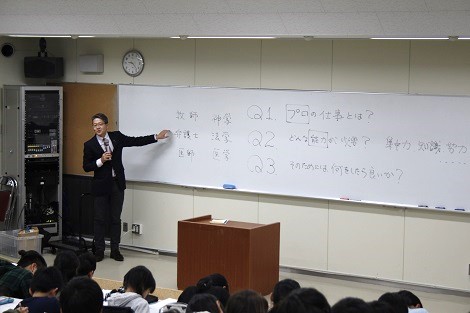 牧師 神学
弁護士 法学
医師 医学
Q1. プロの仕事とは?
Q2 どんな能力が必要? 集中力 知識 努力
Q3 そのためには何をしたら良いか?